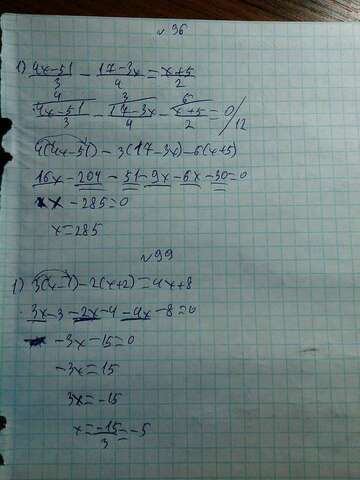 № 96
1) (4x-51)/3 - (17-3x)/4 = (x+5)/2
4 3 6
(4x-51)/3 - (17-3x)/4 - (x+5)/2 = 0 / 12
4(4x-51) - 3(17-3x) - 6(x+5)
16x - 204 - 51 - 9x - 6x - 30 = 0
x - 285 = 0
x = 285
№ 99
1) 3(x-1) - 2(x+2) = 4x+8
3x - 3 - 2x - 4 - 4x - 8 = 0
-3x - 15 = 0
-3x = 15
3x = -15
x = -15/3 = -5